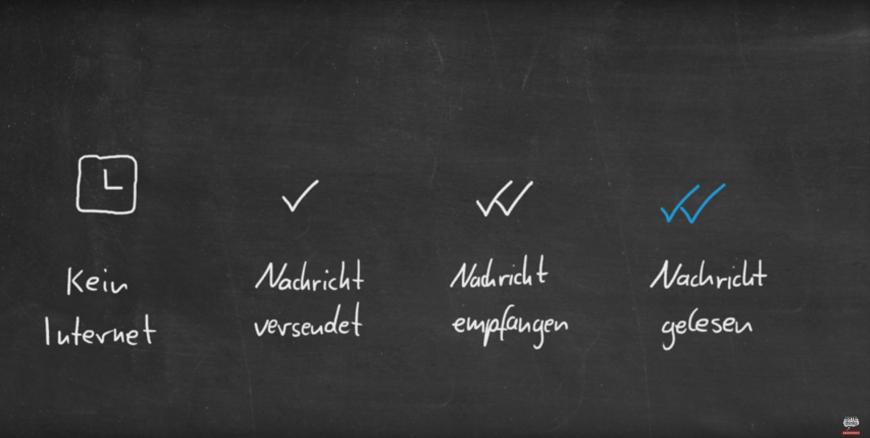 Kein
Internet
Nachricht
versendet
Nachricht
empfangen
Nachricht
gelesen